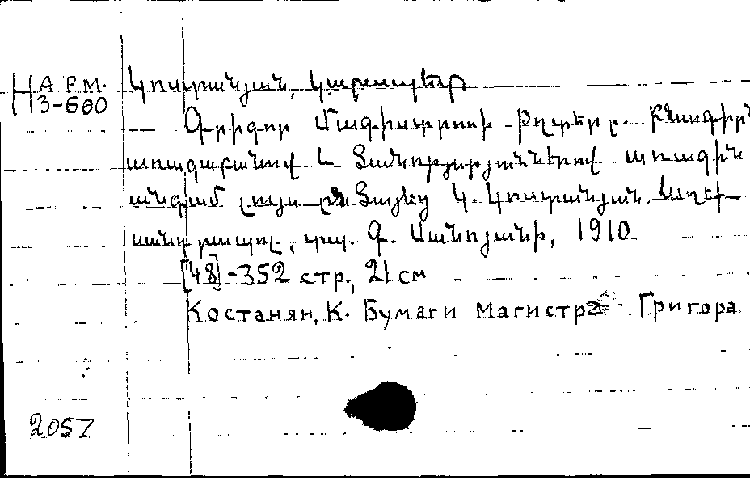 Н А Р.М. Կոստանյան, Կարապետ
13-660
Գրիգոր Մագիստրոսի թղթերը. Բնագիրն
առաջաբանով և ծանոթություններով առաջին
անգամ լույս ընծայեց Կ. Կոստանյան. Աղեք-
սանդրապոլ, տպ. Գ. Սանոյանի, 1910
[48]-352 стр., 21 см
Костанян, К. Бумаги магистра Григора
2057